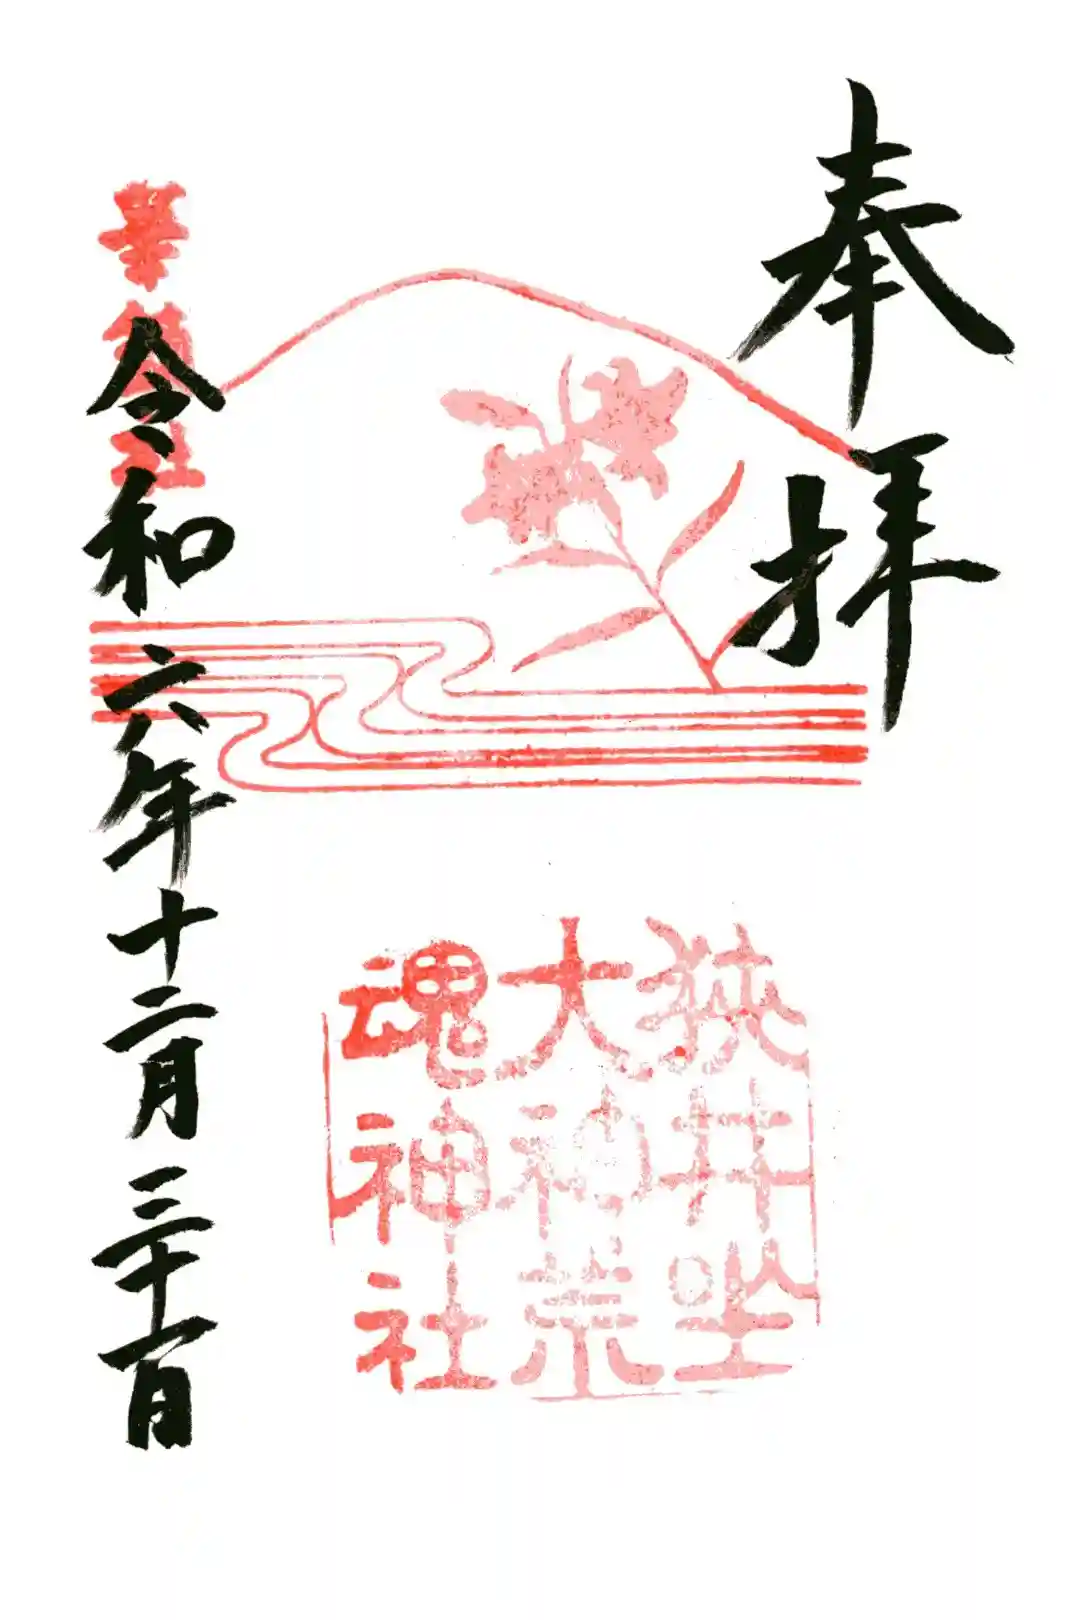 奉拝
狭井坐
大神荒
魂神社
華鎮社
令和六年十二月三十一日